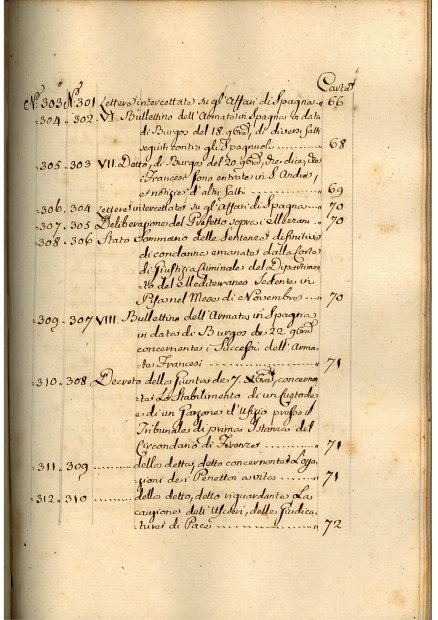 Carta
N.° 303 N.° 301 Lettere intercettate su gl'Affari di Spagna 66
304 302 VI Bullettino dell'Armata in Spagna in data
di Burgos del 18. 9bre, di diversi fatti
seguiti contro gli Spagnuoli 68
305 303 VII Detto, di Burgos del 20. 9bre, che dice, che
i Francesi sono entrati in S. Andrea,
e notizie d'altri fatti 69
306 304 Lettere intercettate su gl'Affari di Spagna 70
307 305 Deliberazione del Prefetto sopra i 70
308 306 Stato Sommario delle Sentenze definitive
di condanna emanate dalla Corte
di Giustizia Criminale del Dipartimen-
to del Mediterraneo Sedente in
Pisa nel Mese di Novembre 70
309 307 VIII Bullettino dell'Armata in Spagna
in data di Burgos de 22. 9bre
concernente i Successi dell'Arma-
ta Francesi 71
310 308 Decreto della Giunta de 7. concernen-
te Lo Stabilimento di un Custode
e di un Garzone d'Ufizio presso il
Tribunale di prima Istanza del
Circondario di Firenze 71
311 309 della detta, detto concernente
de i a vita 71
312 310 della detto, detto riguardante La
cauzione dell'Uscieri, delle Giudica-
ture di Pace 72